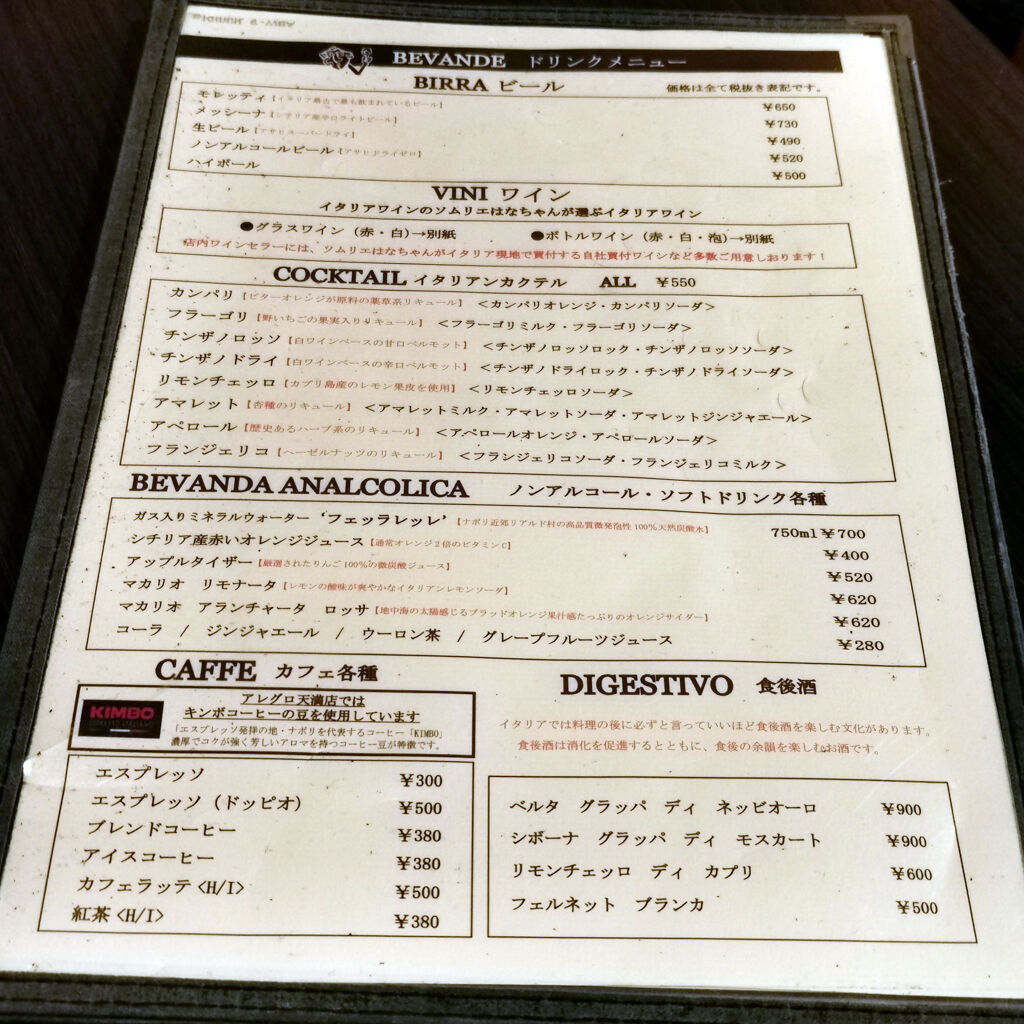 BEVANDE ドリンクメニュー
BIRRA ビール 価格は全て税抜き表記です。
モレッティ【イタリア最古で最も飲まれているビール】 ¥650
メッシーナ【シチリア産辛口ライトビール】 ¥730
生ビール【アサヒスーパードライ】 ¥490
ノンアルコールビール【アサヒドライゼロ】 ¥520
ハイボール ¥500
VINI ワイン
イタリアワインのソムリエはなちゃんが選ぶイタリアワイン
●グラスワイン（赤・白）→別紙 ●ボトルワイン（赤・白・泡）→別紙
店内ワインセラーには、ソムリエはなちゃんがイタリア現地で買付する自社買付ワインなど多数ご用意しおります！
COCKTAIL イタリアンカクテル ALL ¥550
カンパリ【ビターオレンジが原料の薬草系リキュール】 ＜カンパリオレンジ・カンパリソーダ＞
フラーゴリ【野いちごの果実入りリキュール】 ＜フラーゴリミルク・フラーゴリソーダ＞
チンザノロッソ【白ワインベースの甘口ベルモット】 ＜チンザノロッソロック・チンザノロッソソーダ＞
チンザノドライ【白ワインベースの辛口ベルモット】 ＜チンザノドライロック・チンザノドライソーダ＞
リモンチェッロ【カプリ島産のレモン果皮を使用】 ＜リモンチェッロソーダ＞
アマレット【杏種のリキュール】 ＜アマレットミルク・アマレットソーダ・アマレットジンジャエール＞
アペロール【歴史あるハーブ系のリキュール】 ＜アペロールオレンジ・アペロールソーダ＞
フランジェリコ【ヘーゼルナッツのリキュール】 ＜フランジェリコソーダ・フランジェリコミルク＞
BEVANDA ANALCOLICA ノンアルコール・ソフトドリンク各種
ガス入りミネラルウォーター 'フェッラレッレ'【ナポリ近郊リアルド村の高品質微発泡性100％天然炭酸水】 750ml ¥700
シチリア産赤いオレンジジュース【通常オレンジ2倍のビタミンC】 ¥400
アップルタイザー【厳選されたりんご100％の微炭酸ジュース】 ¥520
マカリオ リモナータ【レモンの酸味が爽やかなイタリアンレモンソーダ】 ¥620
マカリオ アランチャータ ロッサ【地中海の太陽感じるブラッドオレンジ果汁感たっぷりのオレンジサイダー】 ¥620
コーラ / ジンジャエール / ウーロン茶 / グレープフルーツジュース ¥280
CAFFE カフェ各種
KIMBO
アレグロ天満店では
キンボコーヒーの豆を使用しています
「エスプレッソ発祥の地・ナポリを代表するコーヒー「KIMBO」
濃厚でコクが強く芳しいアロマを持つコーヒー豆が特徴です。
エスプレッソ ¥300
エスプレッソ（ドッピオ） ¥500
ブレンドコーヒー ¥380
アイスコーヒー ¥380
カフェラッテ<H/I> ¥500
紅茶<H/I> ¥380
DIGESTIVO 食後酒
イタリアでは料理の後に必ずと言っていいほど食後酒を楽しむ文化があります。
食後酒は消化を促進するとともに、食後の余韻を楽しむお酒です。
ベルタ グラッパ ディ ネッビオーロ ¥900
シボーナ グラッパ ディ モスカート ¥900
リモンチェッロ ディ カプリ ¥600
フェルネット ブランカ ¥500